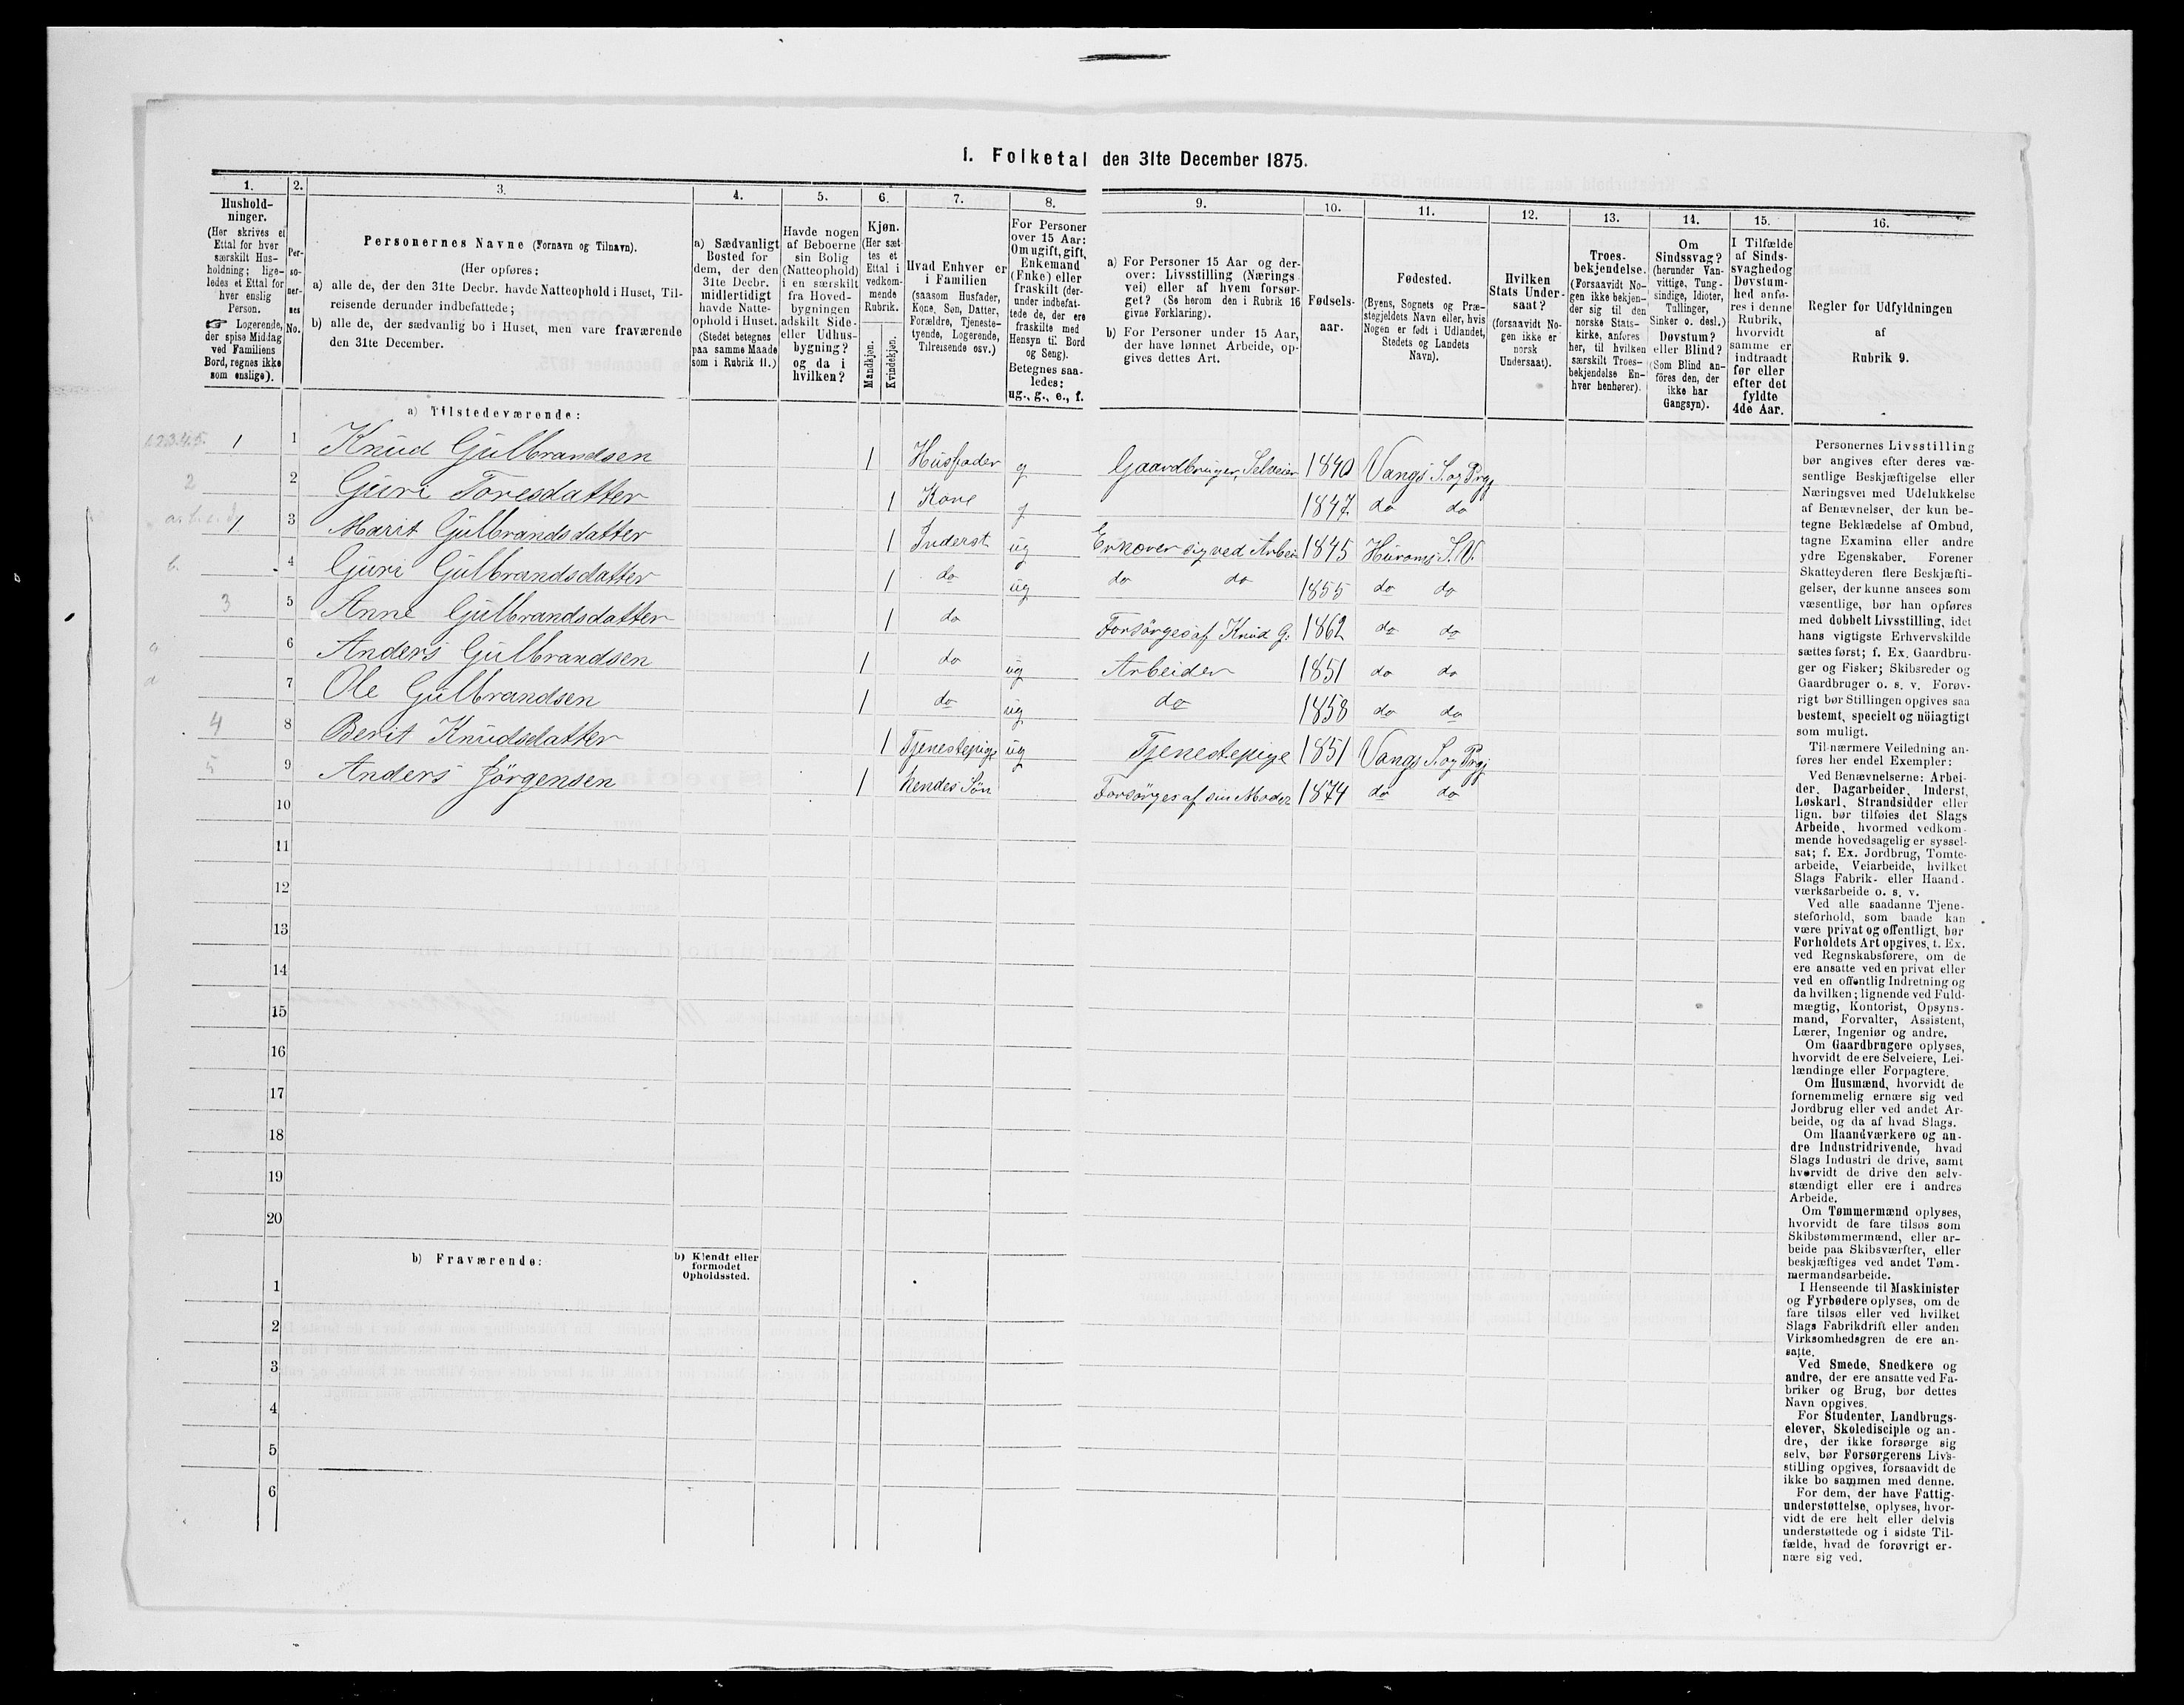 I. Folketal den 31te December 1875.
1.
Hushold-
ninger.
(Her skrives et
Ettal for hver
særskilt Hus-
holdning; lige-
ledes et Ettal for
hver enslig
Person.
☞ Logerende,
der spise Middag
ved Familiens
Bord, regnes ikke
som enslige).
2.
Per-
so-
ner-
nes
No.
3.
Personernes Navne (Fornavn og Tilnavn).
(Her opføres:
a) alle de, der den 31te Decbr. havde Natteophold i Huset, Til-
reisende derunder indbefattede;
b) alle de, der sædvanlig bo i Huset, men vare fraværende
den 31te December.
4.
a) Sædvanligt
Bosted for
dem, der den
31te Decbr.
midlertidigt
havde Natte-
ophold i Huset.
(Stedet betegnes
paa samme Maade
som i Rubrik 11.)
5.
Havde nogen
af Beboerne
sin Bolig
(Natteophold)
i en særskilt
fra Hoved-
bygningen
adskilt Side-
eller Udhus-
bygning?
og da i
hvilken?
6.
Kjøn.
(Her sæt-
tes et
Ettal i
vedkom-
mende
Rubrik.
Mandkjøn.
Kvindekjøn.
7.
Hvad Enhver er
i Familien
(saasom Husfader,
Kone, Søn, Datter,
Forældre, Tjeneste-
tyende, Logerende,
Tilreisende osv.)
8.
For Personer
over 15 Aar:
Om ugift, gift,
Enkemand
(Enke) eller
fraskilt (der-
under indbefat-
tede de, der ere
fraskilte med
Hensyn til Bord
og Seng).
Betegnes saa-
ledes:
ug., g., e., f.
9.
a) For Personer 15 Aar og der-
over: Livsstilling (Nærings-
vei) eller af hvem forsør-
get? (Se herom den i Rubrik 16
givne Forklaring).
b) For Personer under 15 Aar,
der have lønnet Arbeide, op-
gives dettes Art.
10.
Fødsels-
aar.
11.
Fødested.
(Byens, Sognets og Præ-
stegjeldets Navn eller, hvis
Nogen er født i Udlandet,
Stedets og Landets
Navn).
12.
Hvilken
Stats Under-
saat?
(forsaavidt No-
gen ikke er
norsk
Undersaat).
13.
Troes-
bekjendelse.
(Forsaavidt No-
gen ikke bekjen-
der sig til den
norske Stats-
kirke, anføres
her, til hvilken
særskilt Troes-
bekjendelse En-
hver henhører).
14.
Om
Sindssvag?
(herunder Van-
vittige, Tung-
sindige, Idioter,
Tullinger,
Sinker o. desl.)
Døvstum?
eller Blind?
(Som Blind an-
föres den, der
ikke har
Gangsyn).
15.
I Tilfælde
af Sinds-
svaghed og
Døvstum-
hed anfø-
res i denne
Rubrik,
hvorvidt
samme er
indtraadt
før eller
efter det
fyldte
4de Aar.
16.
Regler for Udfyldningen
af
Rubrik 9.
a) Tilstedeværende:
1.2.3.4.5. 1 1 Knud Gulbrandsen 1 Husfader g Gaardbruger, Selveier 1840 Vangs S. og Prgj
2 2 Guri Toresdatter 1 Kone g 1847 do do
1 3 Marit Gulbrandsdatter 1 Inderst ug Ernærer sig ved Arbeid 1845 Hurums S. V.
b. 4 Guri Gulbrandsdatter 1 do ug do do 1855 do do
3 5 Anne Gulbrandsdatter 1 do Forsörges af Knud G. 1862 do do
6 Anders Gulbrandsen 1 do ug Arbeider 1851 do do
d 7 Ole Gulbrandsen 1 do ug do 1858 do do
4 8 Berit Knudsdatter 1 Tjenestepige ug Tjenestepige 1851 Vangs S. og Prgj
5 9 Anders Jörgensen 1 hendes Søn Forsörges af sin Moder 1874 do do
10
11
12
13
14
15
16
17
18
19
20
b) Fraværende:
b) Kjendt eller
formodet
Opholdssted.
1
2
3
4
5
6
Personernes Livsstilling
bør angives efter deres væ-
sentlige Beskjæftigelse eller
Næringsvei med Udelukkelse
af Benævnelser, der kun be-
tegne Beklædelse af Ombud,
tagne Examina eller andre
ydre Egenskaber. Forener
Skatteyderen flere Beskjæfti-
gelser, der kunne ansees som
væsentlige, bør han opføres
med dobbelt Livsstilling, idet
hans vigtigste Erhvervskilde
sættes først; f. Ex. Gaardbru-
ger og Fisker; Skibsreder og
Gaardbruger o. s. v. Forøv-
rigt bør Stillingen opgives saa
bestemt, specielt og nöiagtigt
som muligt.
Til nærmere Veiledning an-
føres her endel Exempler:
Ved Benævnelserne: Arbei-
der, Dagarbeider, Inderst,
Løskarl, Strandsidder eller
lign. bør tilføies det Slags
Arbeide, hvormed vedkom-
mende hovedsagelig er syssel-
sat; f. Ex. Jordbrug, Tomte-
arbeide, Veiarbeide, hvilket
Slags Fabrik- eller Haand-
værksarbeide o. s. v.
Ved alle saadanne Tjene-
steforhold, som baade kan
være privat og offentligt, bør
Forholdets Art opgives, t. Ex.
ved Regnskabsførere, om de
ere ansatte ved en privat eller
ved en offentlig Indretning og
da hvilken; lignende ved Fuld-
mægtig, Kontorist, Opsyns-
mand, Forvalter, Assistent,
Lærer, Ingeniør og andre.
Om Gaardbrugere oplyses,
hvorvidt de ere Selveiere, Lei-
lændinge eller Forpagtere.
Om Husmænd, hvorvidt de
fornemmelig ernære sig ved
Jordbrug eller ved andet Ar-
beide, og da af hvad Slags.
Om Haandværkere og an-
dre Industridrivende, hvad
Slags Industri de drive, samt
hvorvidt de drive den selv-
stændigt eller ere i andres
Arbeide.
Om Tømmermænd oplyses,
hvorvidt de fare tilsøs som
Skibstømmermænd, eller ar-
beide paa Skibsværfter, eller
beskjæftiges ved andet Tøm-
mermandsarbeide.
I Henseende til Maskinister
og Fyrbødere oplyses, om de
fare tilsøs eller ved hvilket
Slags Fabrikdrift eller anden
Virksomhedsgren de ere an-
satte.
Ved Smede, Snedkere og
andre, der ere ansatte ved Fa-
briker og Brug, bør dettes
Navn opgives.
For Studenter, Landbrugs-
elever, Skoledisciple og an-
dre, der ikke forsørge sig
selv, bør Forsørgerens Livs-
stilling opgives, forsaavidt de
ikke bo sammen med denne.
For dem, der have Fattig-
understøttelse, oplyses, hvor-
vidt de ere helt eller delvis
understøttede og i sidste Til-
fælde, hvad de forøvrigt er-
nære sig ved.